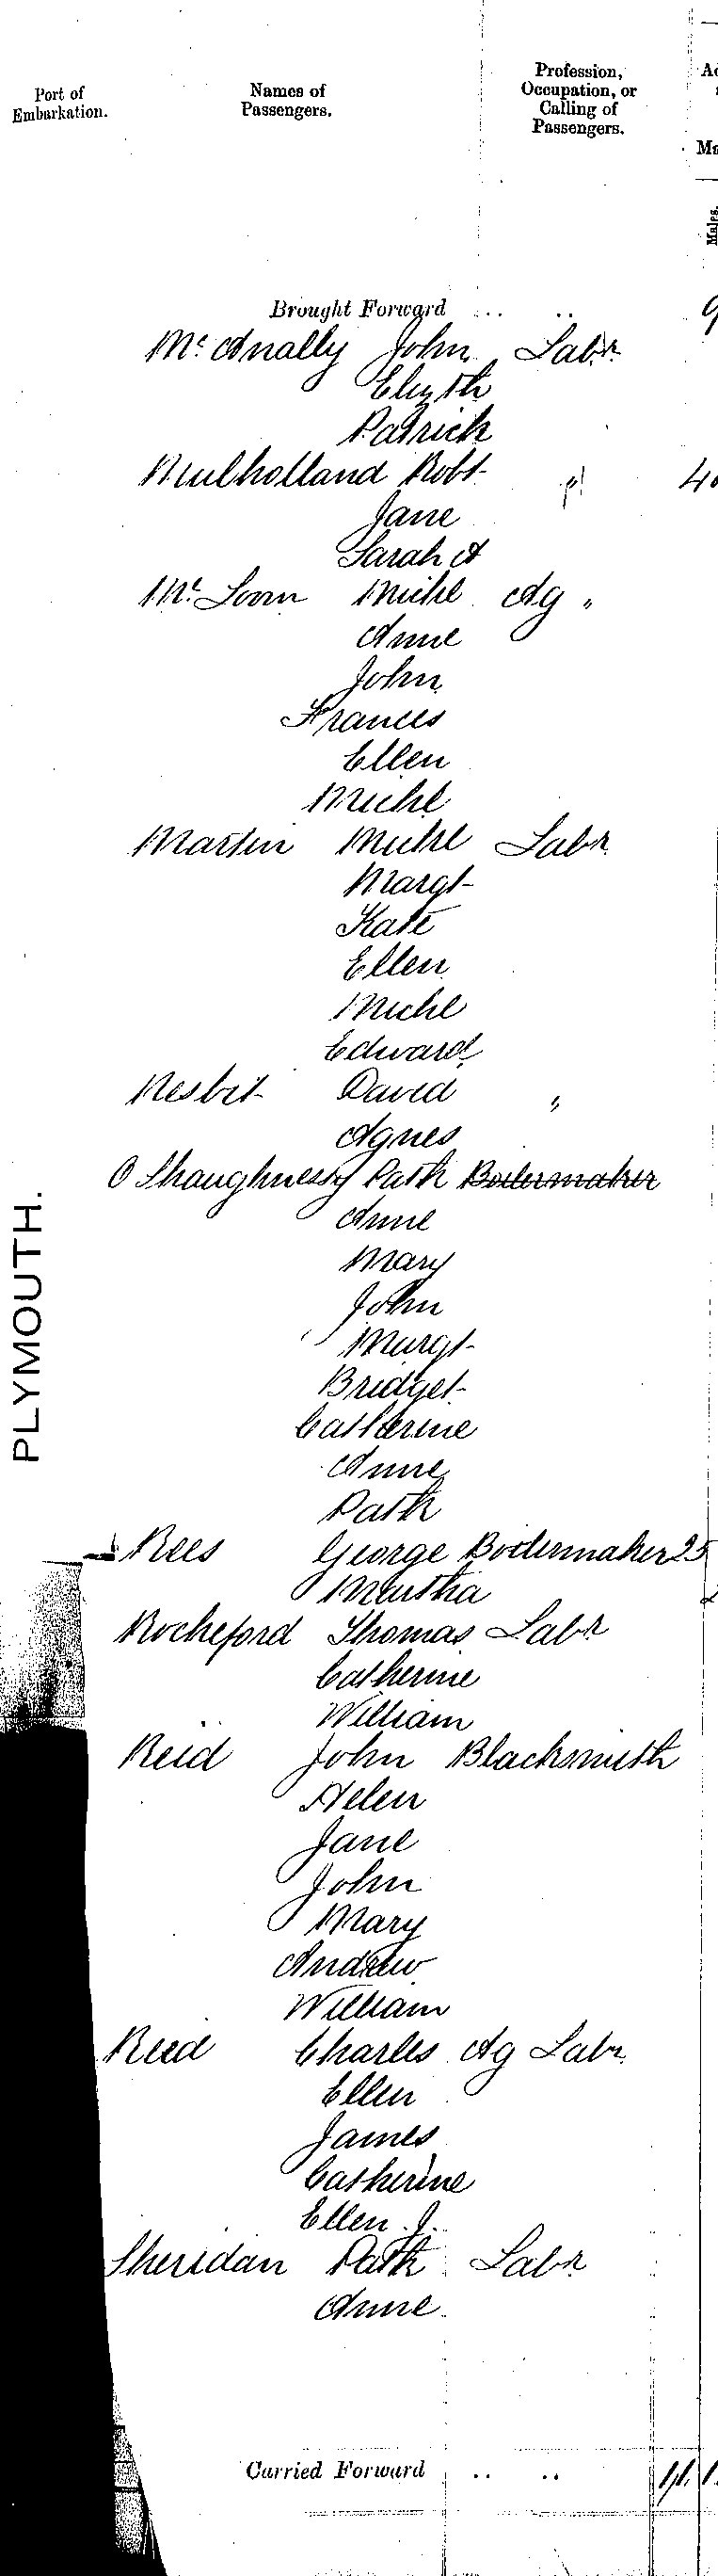 Port of Embarkation.
Names of Passengers.
Profession, Occupation, or Calling of Passengers.
Males.
PLYMOUTH.
Brought Forward .. ..
McAnally John Labr
Elizth
Patrick
Mulholland Robt "
Jane
Sarah A
Mc Michl Ag "
Anne
John
Frances
Ellen
Michl
Martin Michl Labr
Margt
Kate
Ellen
Michl
Edward
Nesbit David "
Agnes
O Shaughnessy Patk Boilermaker
Anne
Mary
John
Margt
Bridget
Catherine
Anne
Patk
Rees George Boilermaker 25
Martha
Rocheford Thomas Labr
Catherine
William
Reid John Blacksmith
Helen
Jane
John
Mary
Andrew
William
Reed Charles Ag Labr
Ellen
James
Catherine
Ellen J.
Sheridan Patk Labr
Anne
Carried Forward .. ..